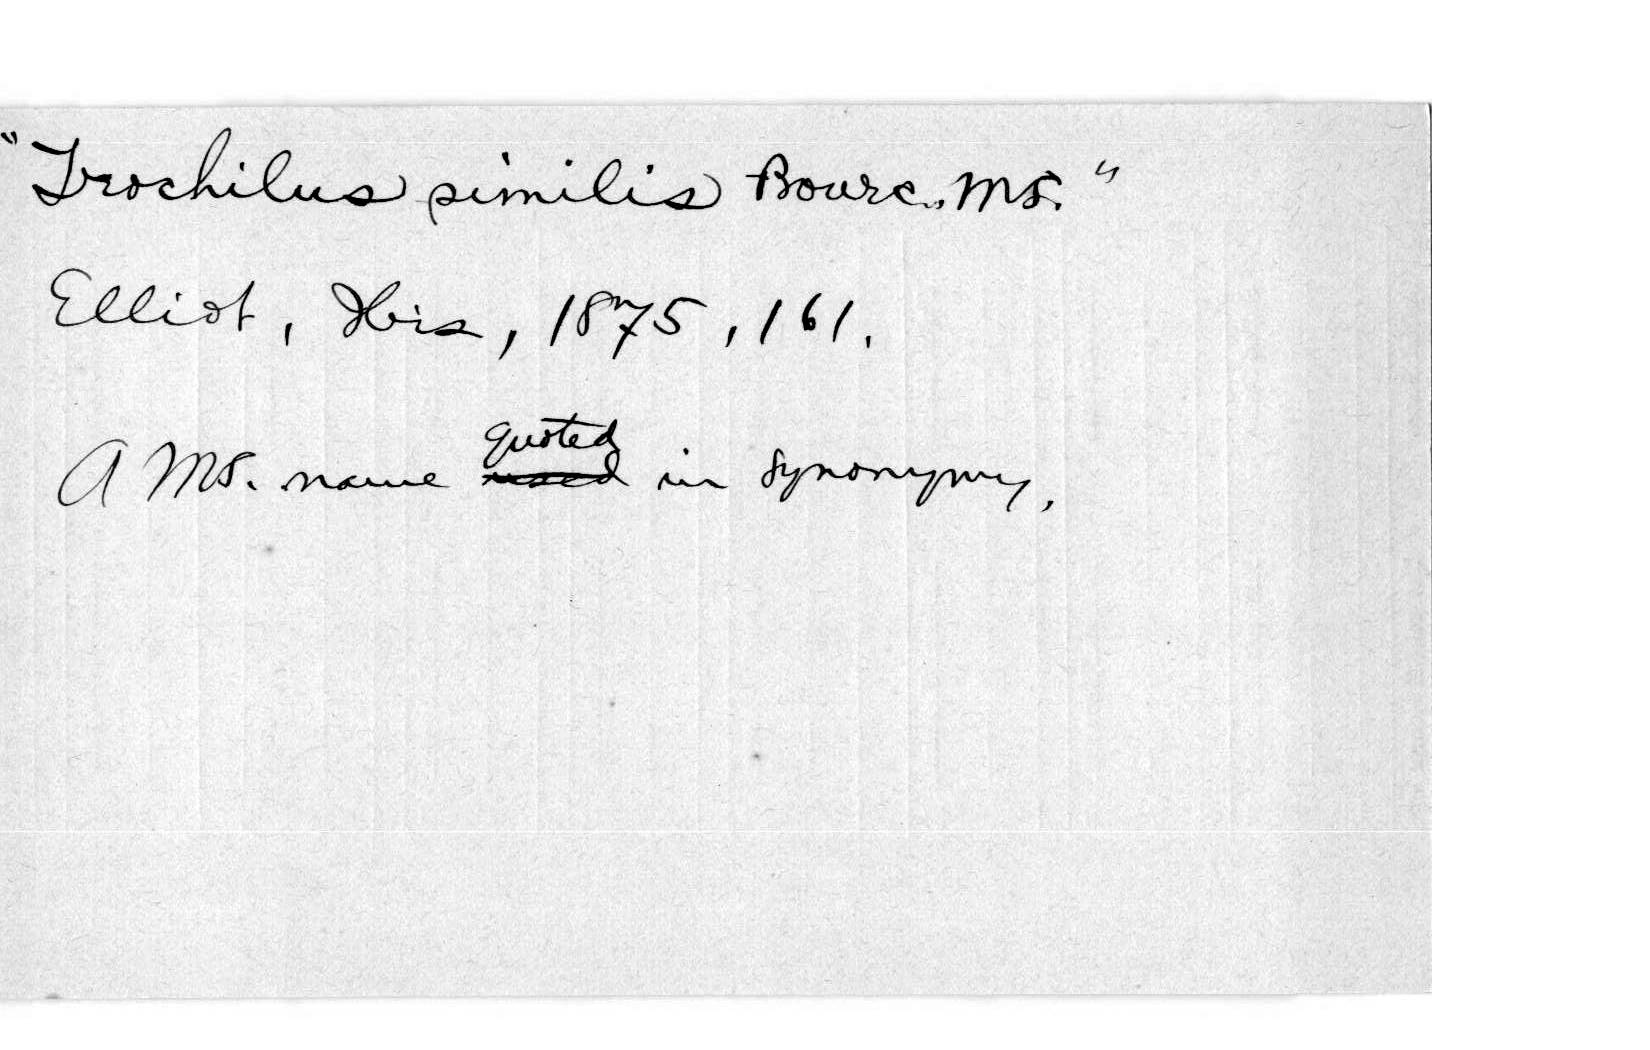 "Trochilus similis Bourc., MS."
Elliot, Ibis, 1875, 161.
A MS. name quoted in synonymy.